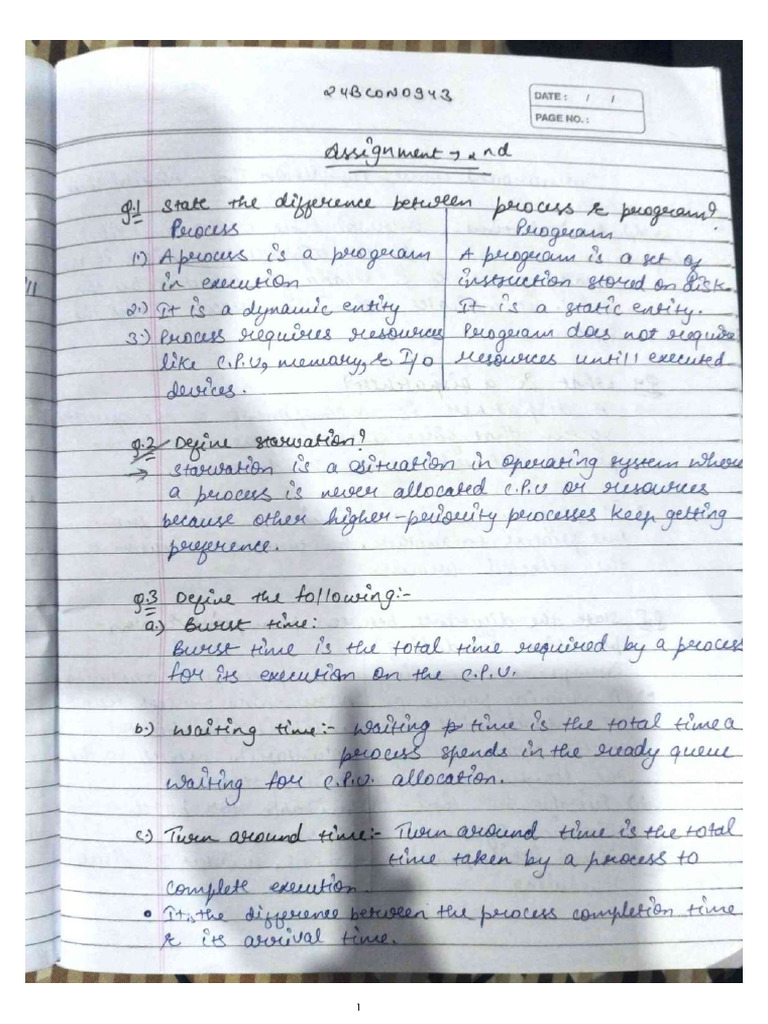 24BCON0943
DATE: / /
PAGE NO.:
Assignment → 2nd
Q.1 State the difference between process & program?
Process Program
1.) A process is a program A program is a set of
in execution instruction stored on Disk.
2.) It is a dynamic entity It is a static entity.
3.) Process requires resources Program does not require
like C.P.U, memory, & I/O resources until executed
devices.
Q.2 Define starvation?
→ Starvation is a situation in operating system where
a process is never allocated C.P.U or resources
because other higher-priority processes keep getting
preference.
Q.3 Define the following:-
a.) Burst time:
Burst time is the total time required by a process
for its execution on the C.P.U.
b.) Waiting time:- Waiting time is the total time a
process spends in the ready queue
waiting for C.P.U. allocation.
c.) Turn around time:- Turn around time is the total
time taken by a process to
complete execution.
• It is the difference between the process completion time
& its arrival time.
1